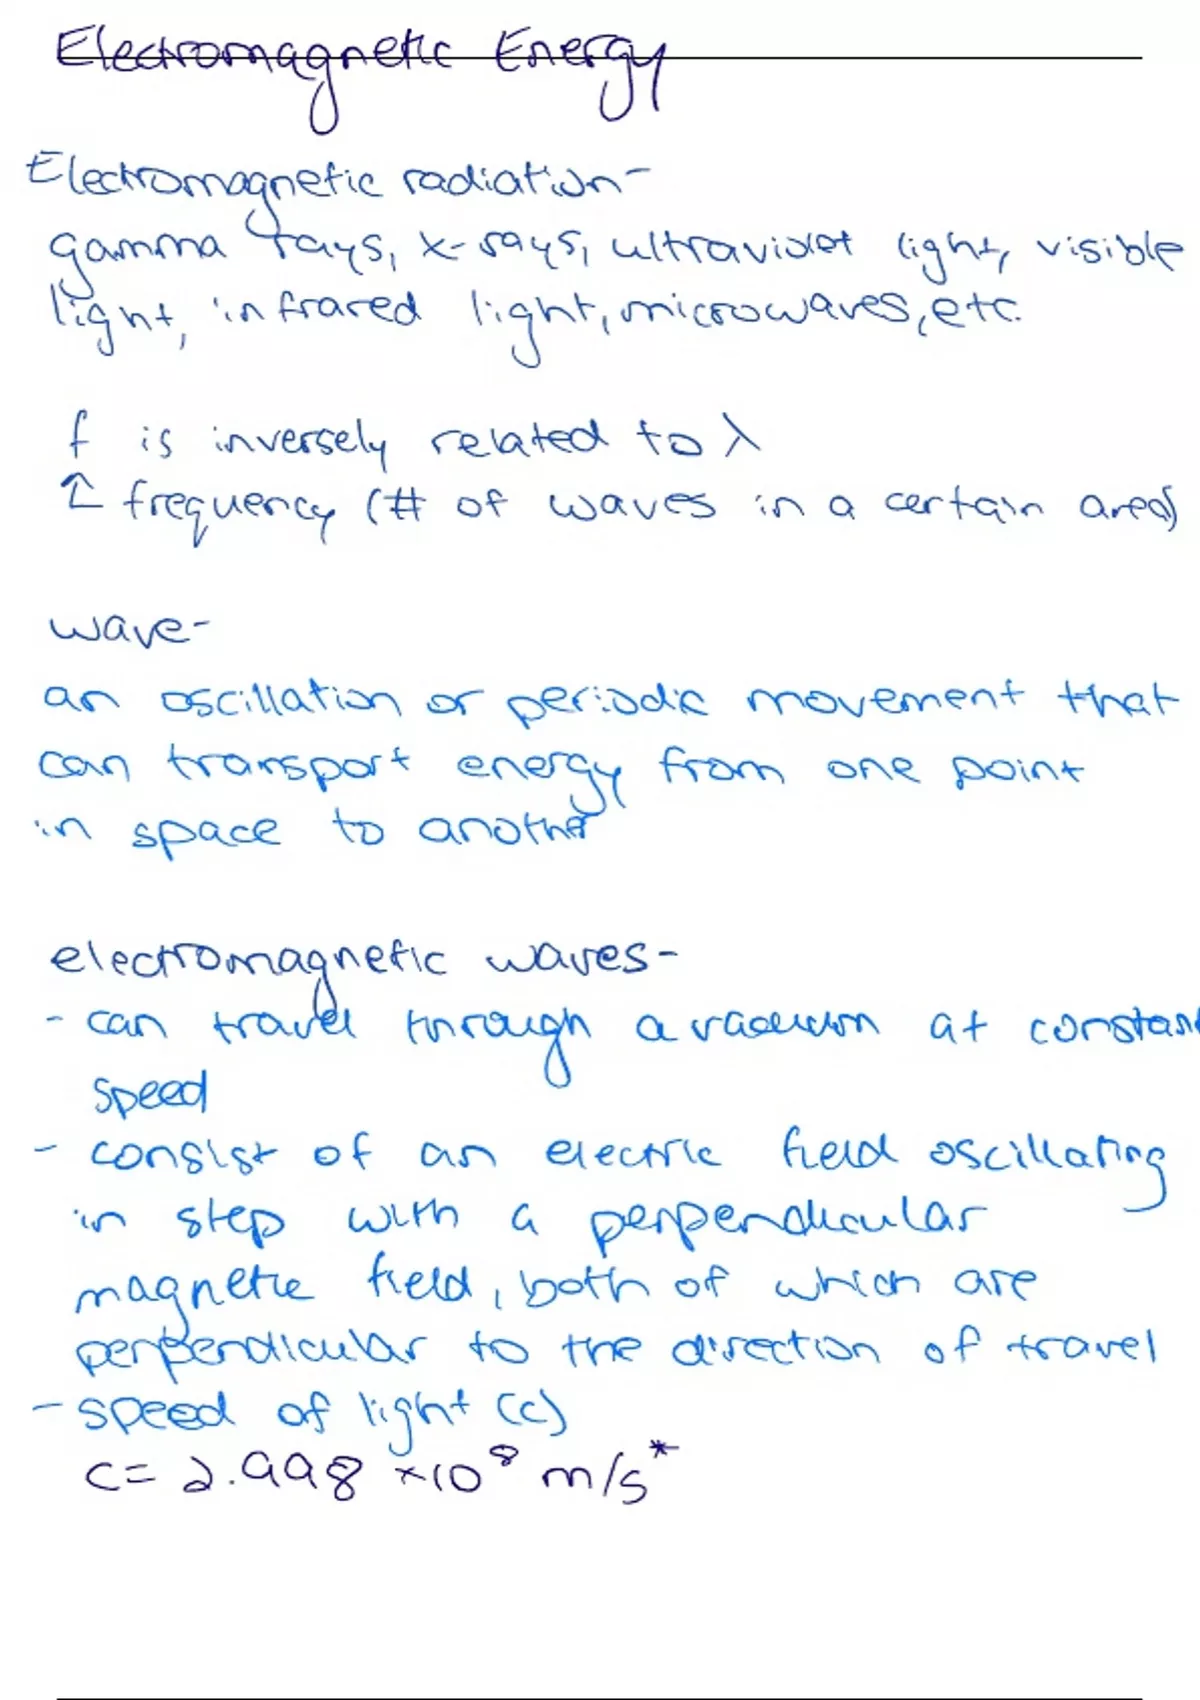 Electromagnetic Energy
Electromagnetic radiation-
gamma rays, x-rays, ultraviolet light, visible
light, infrared light, microwaves, etc.
f is inversely related to λ
↑ frequency (# of waves in a certain area)
wave-
an oscillation or periodic movement that
can transport energy from one point
in space to another
electromagnetic waves-
- can travel through a vacuum at constant
speed
- consist of an electric field oscillating
in step with a perpendicular
magnetic field, both of which are
perpendicular to the direction of travel
- speed of light (c)
c = 2.998 ×10⁸ m/s*